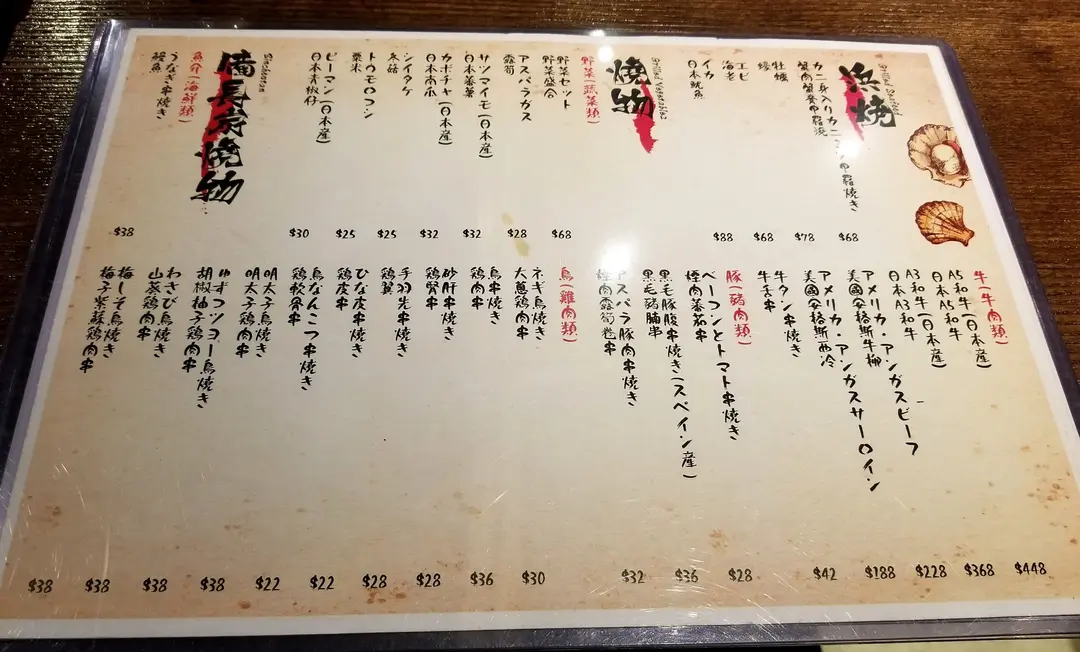 浜焼
カニ身入りカニ
蟹肉蟹膏甲羅焼
$68
牡蠣
蠔
$78
エビ
海老
$68
イカ
日本魷魚
$88
焼物
野菜(蔬菜類)
野菜セット
野菜盛合
$68
アスパラガス
露筍
$28
サツマイモ(日本産)
日本蕃薯
$32
カボチャ(日本産)
日本南瓜
$32
シイタケ
冬菇
$25
トウモロコシ
粟米
$25
ピーマン(日本産)
日本青椒仔
$30
備長炭焼物
魚介(海鮮類)
うなぎ串焼き
鰻魚
$38
牛(牛肉類)
A5和牛(日本産)
日本A5和牛
$448
A3和牛(日本産)
日本A3和牛
$368
アメリカ・アンガスビーフ
美國安格斯牛柳
$228
アメリカ・アンガスサーロイン
美國安格斯西冷
$188
牛タン串焼き
牛舌串
$42
豚(豬肉類)
ベーコンとトマト串焼き
煙肉蕃茄串
$28
黒毛豚腹串焼き(スペイン産)
黑毛豬腩串
$36
アスパラ豚肉串焼き
煙肉露筍卷串
$32
鳥(雞肉類)
ネギ鳥焼き
大蔥鶏肉串
$30
鳥串焼き
鶏肉串
$36
砂肝串焼き
鶏腎串
$28
手羽先串焼き
鶏翼
$28
ひな皮串焼き
鶏皮串
$22
鳥なんこつ串焼き
鶏軟骨串
$22
明太子鳥焼き
明太子鶏肉串
$38
ゆずコショー鳥焼き
胡椒柚子鶏肉串
$38
わさび鳥焼き
山葵鶏肉串
$38
梅しそ鳥焼き
梅子紫蘇鶏肉串
$38